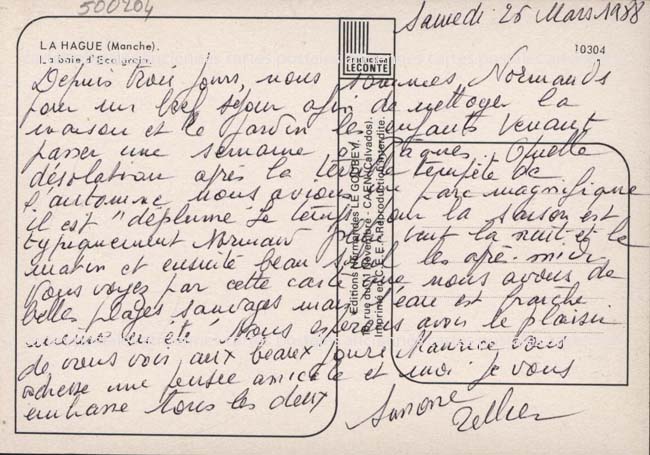 500204
Samedi 26 Mars 1988
LA HAGUE (Manche).
La baie d'Ecalgrain.
10304
Production
LECONTE
Editions Normandes LE GOUBEY.
CAEN (Calvados).
Imprimé en C.E.E. Reproduction interdite.
Depuis trois jours, nous sommes Normands
pour un bref séjour afin de nettoyer la
maison et le jardin les enfants venant
passer une semaine à Pâques. Quelle
désolation après la tempête de
l'automne nous avions un parc magnifique
il est "déplumé" Le temps pour la saison est
typiquement Normand pluie vent la nuit et le
matin et ensuite beau soleil les après-midi
Vous voyez par cette carte que nous avons de
belles plages sauvages mais l'eau est fraîche
même en été. Nous espérons avoir le plaisir
de vous voir aux beaux jours Maurice vous
adresse une pensée amicale et moi je vous
embrasse tous les deux